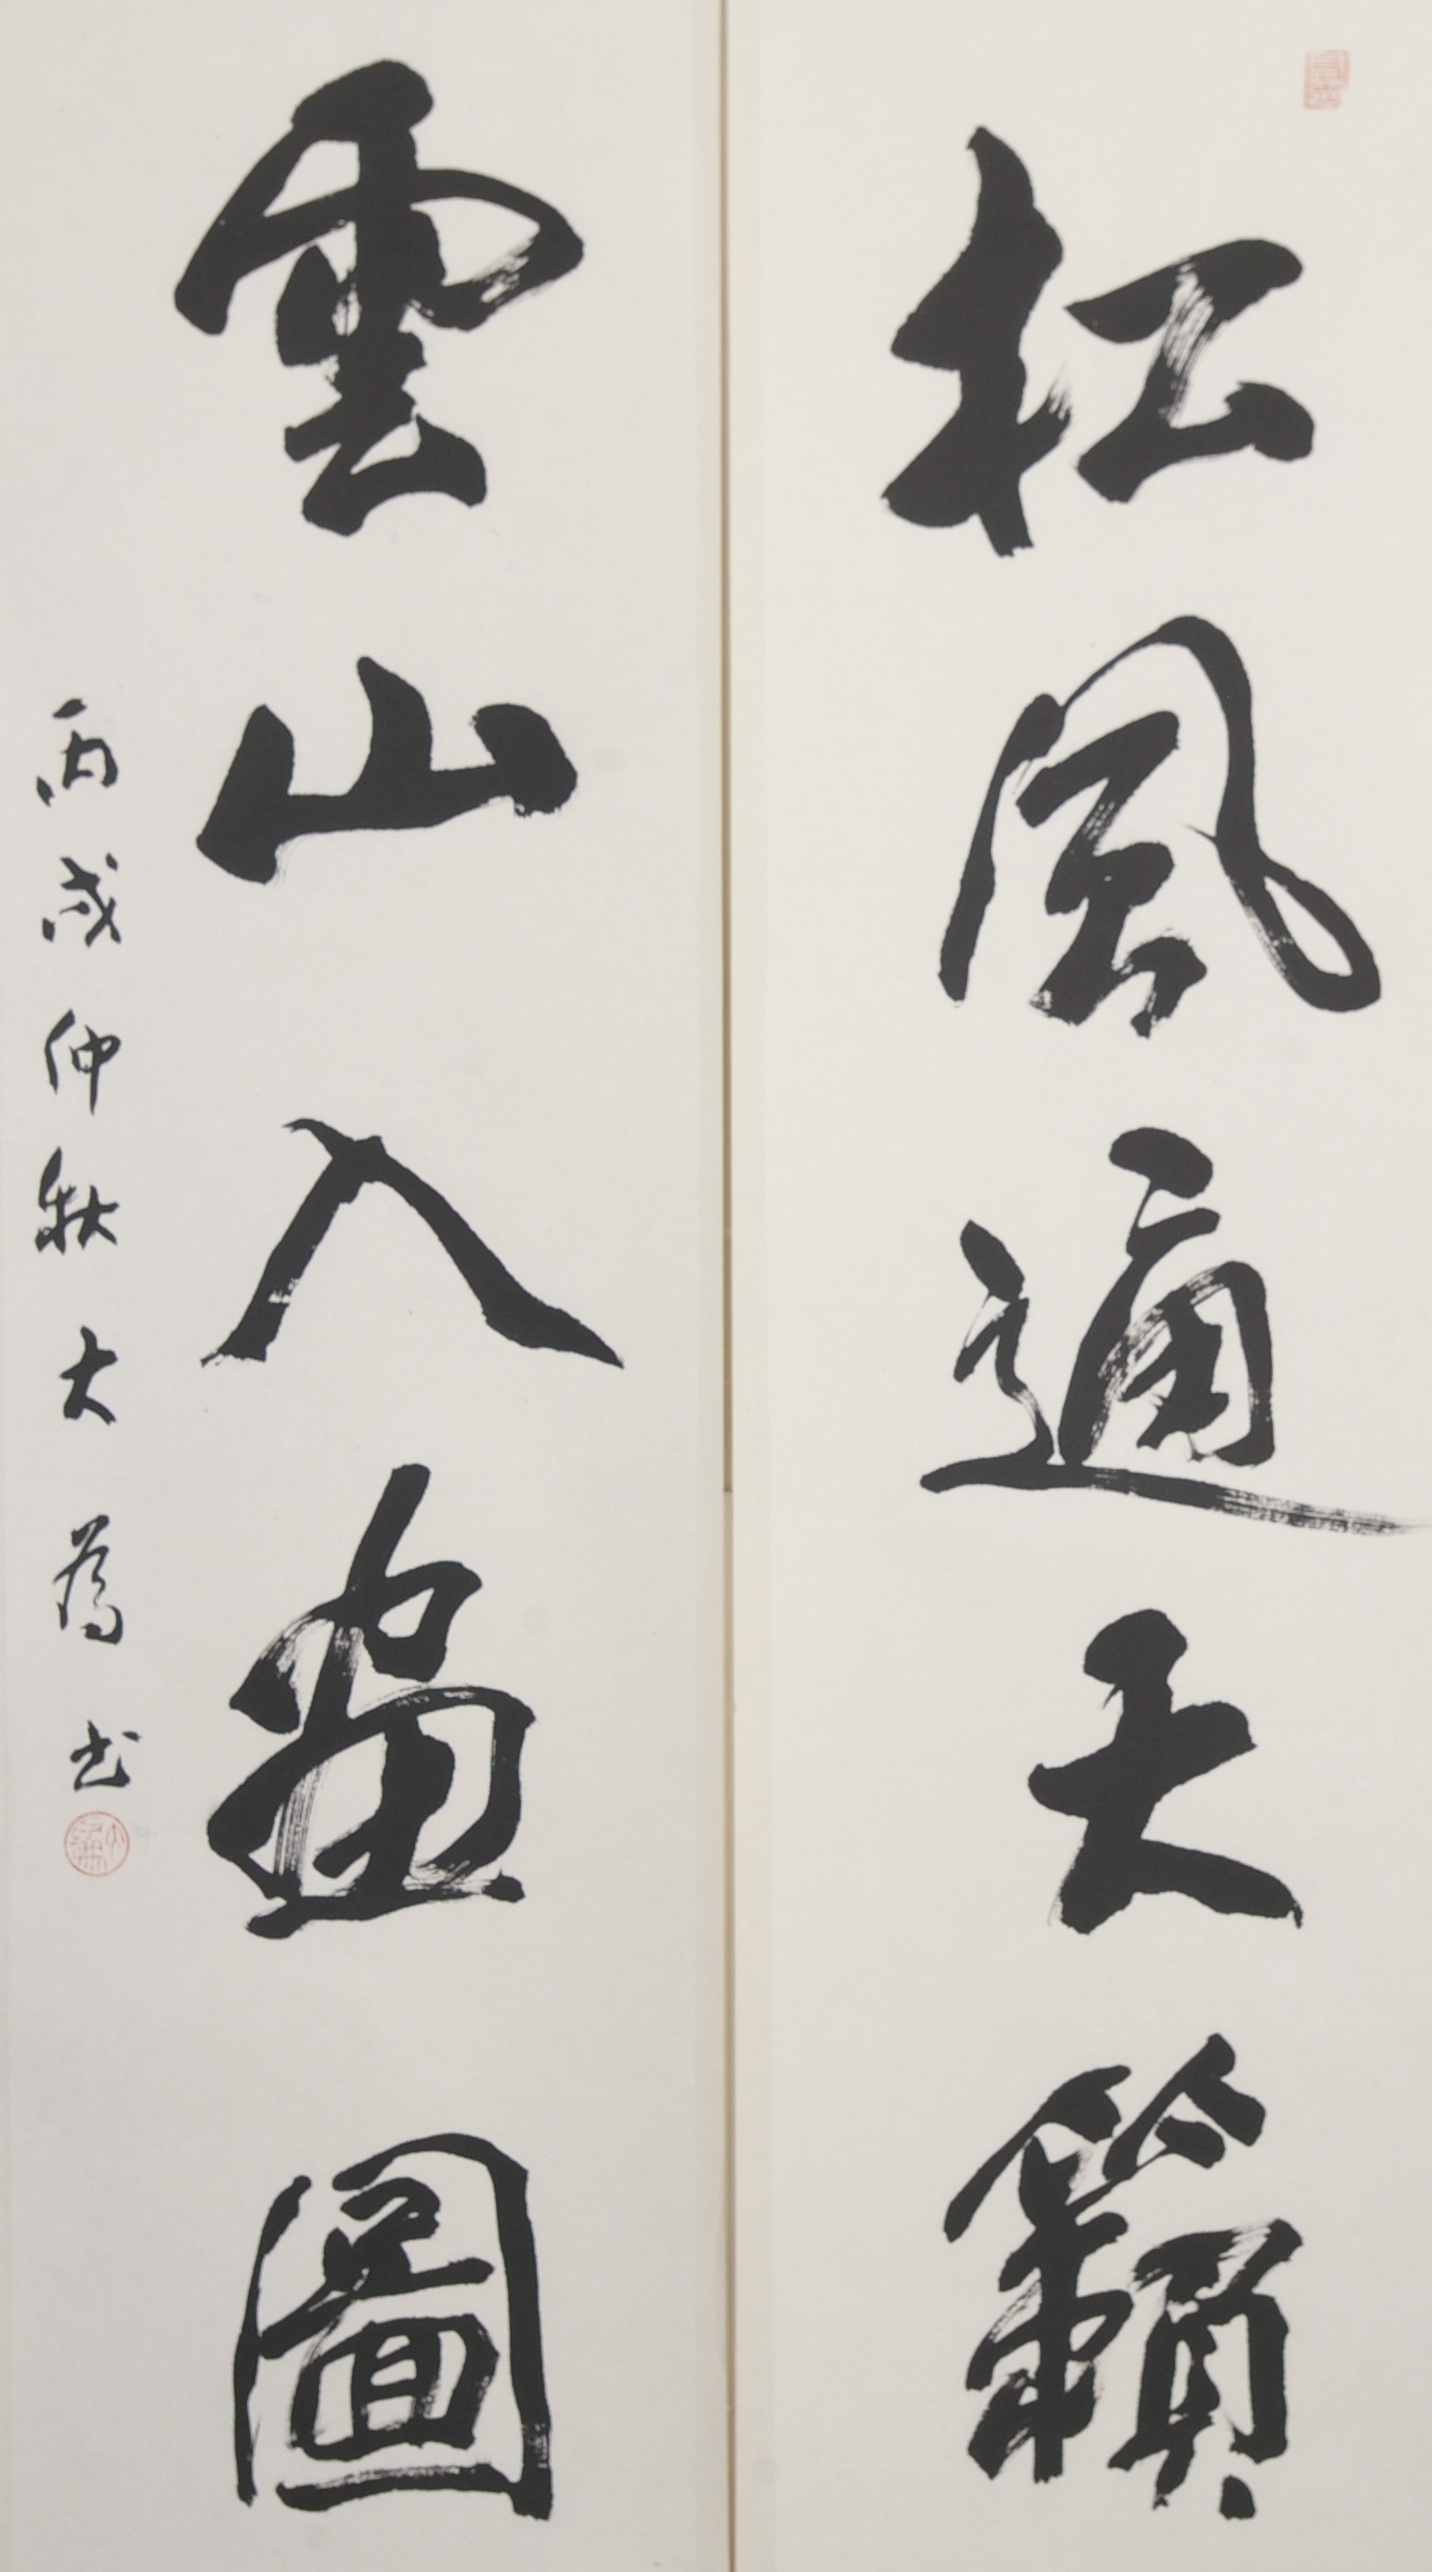 松風通天籟
雲山入畫圖
丙戌仲秋大為書